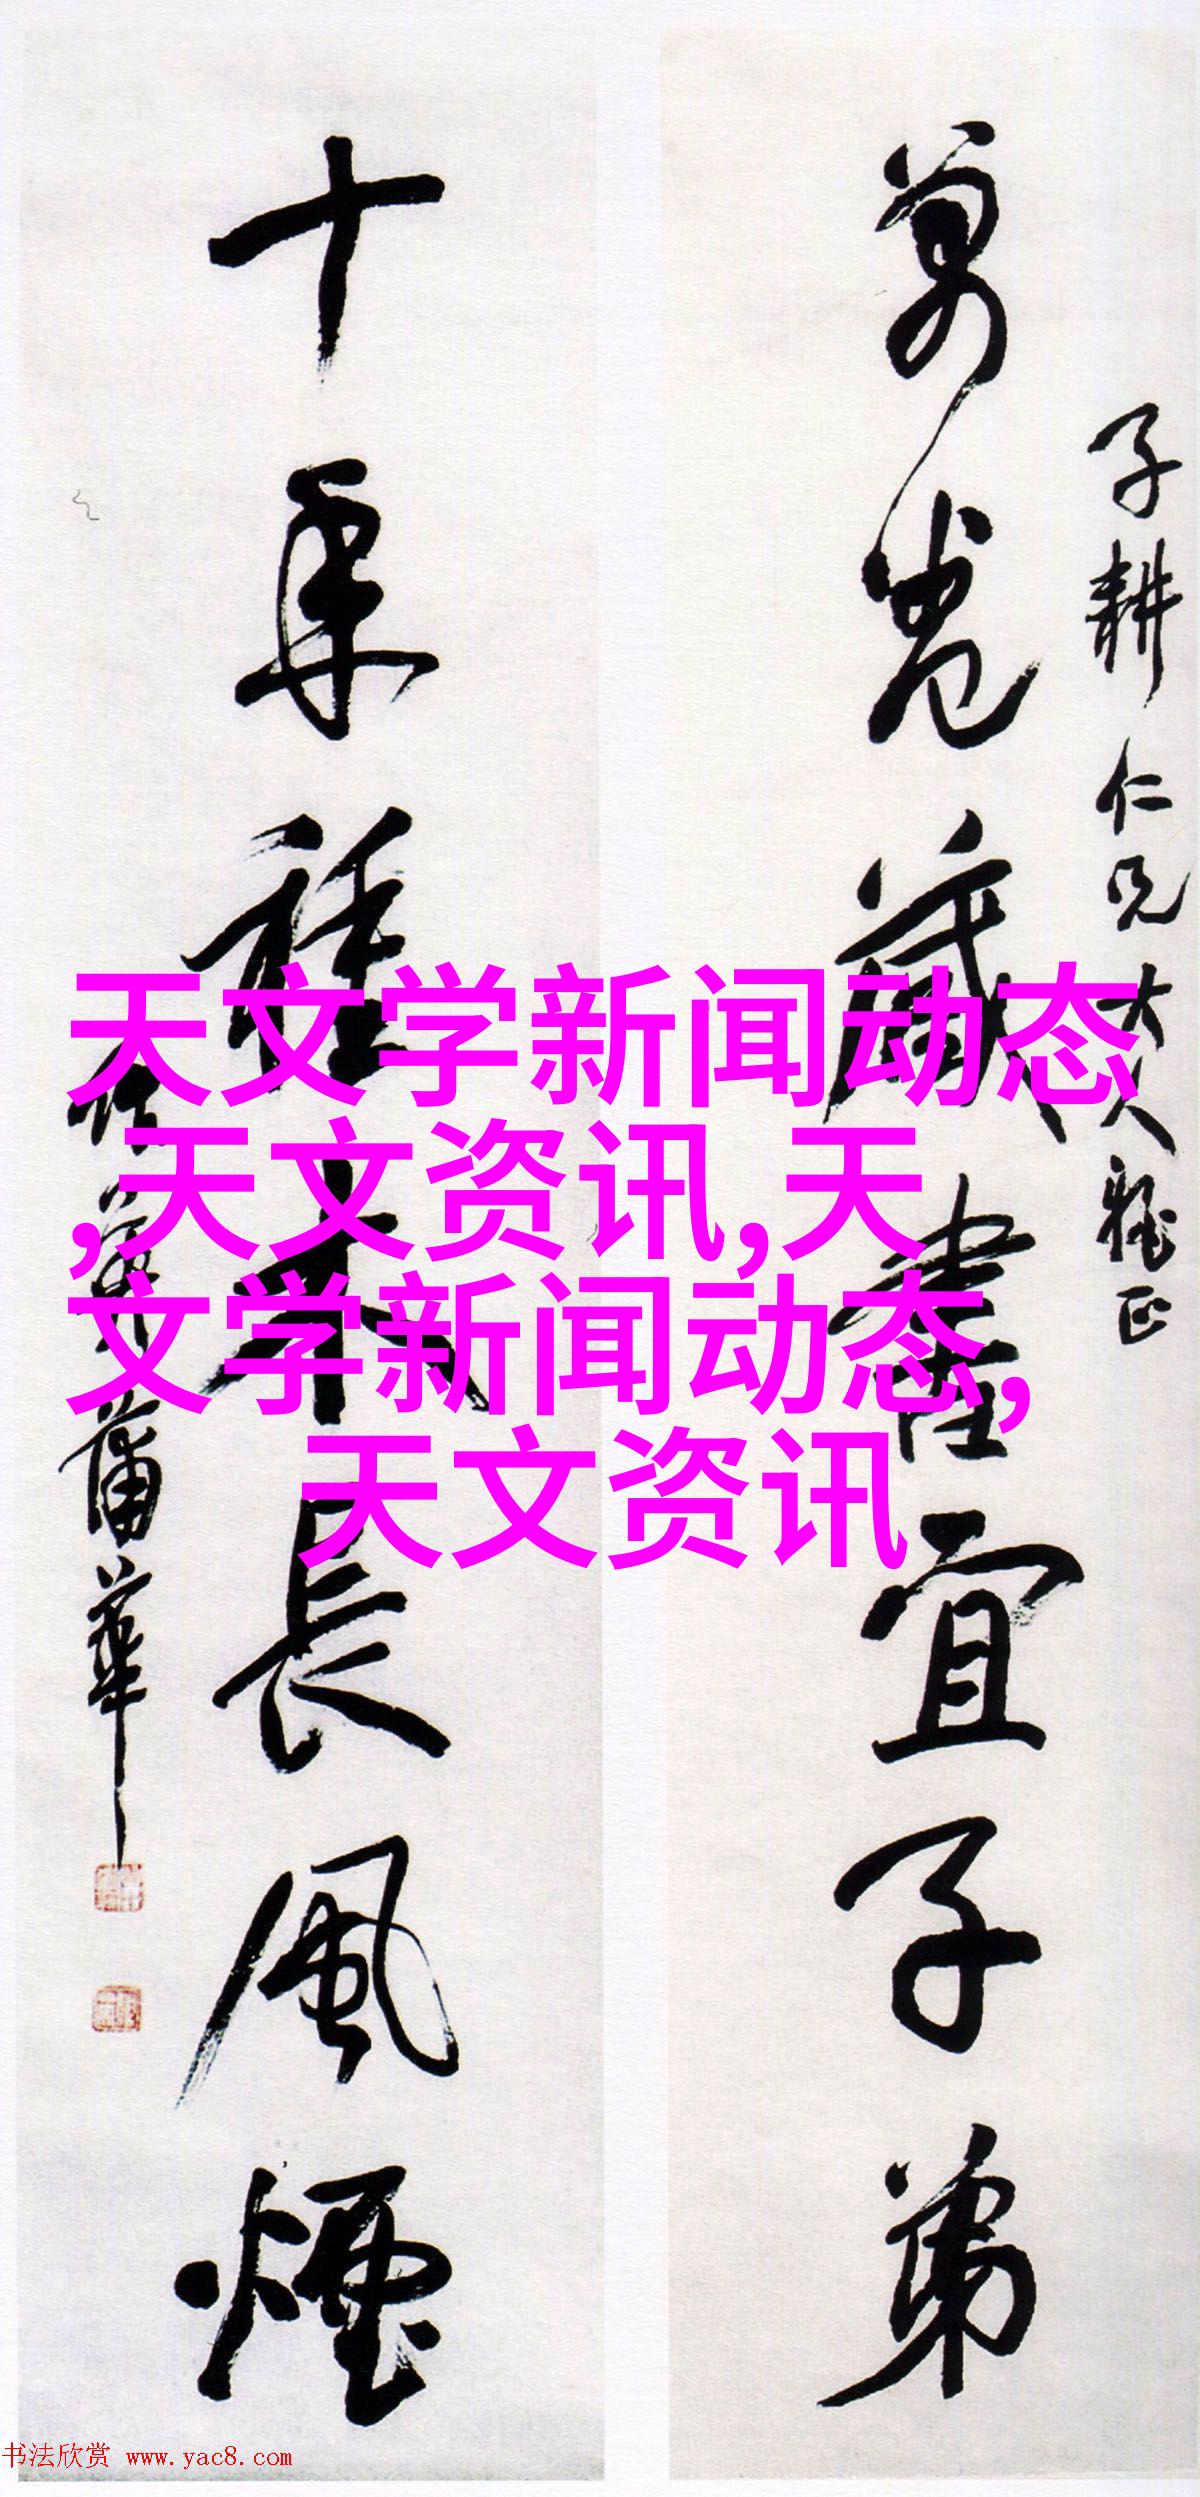 子耕仁兄大人雅正
萬卷藏書宜子弟
十年種木長風煙
作英蒲華
天文学新闻动态
,天文资讯,天
文学新闻动态,
天文资讯
书法欣赏 www.yac8.com